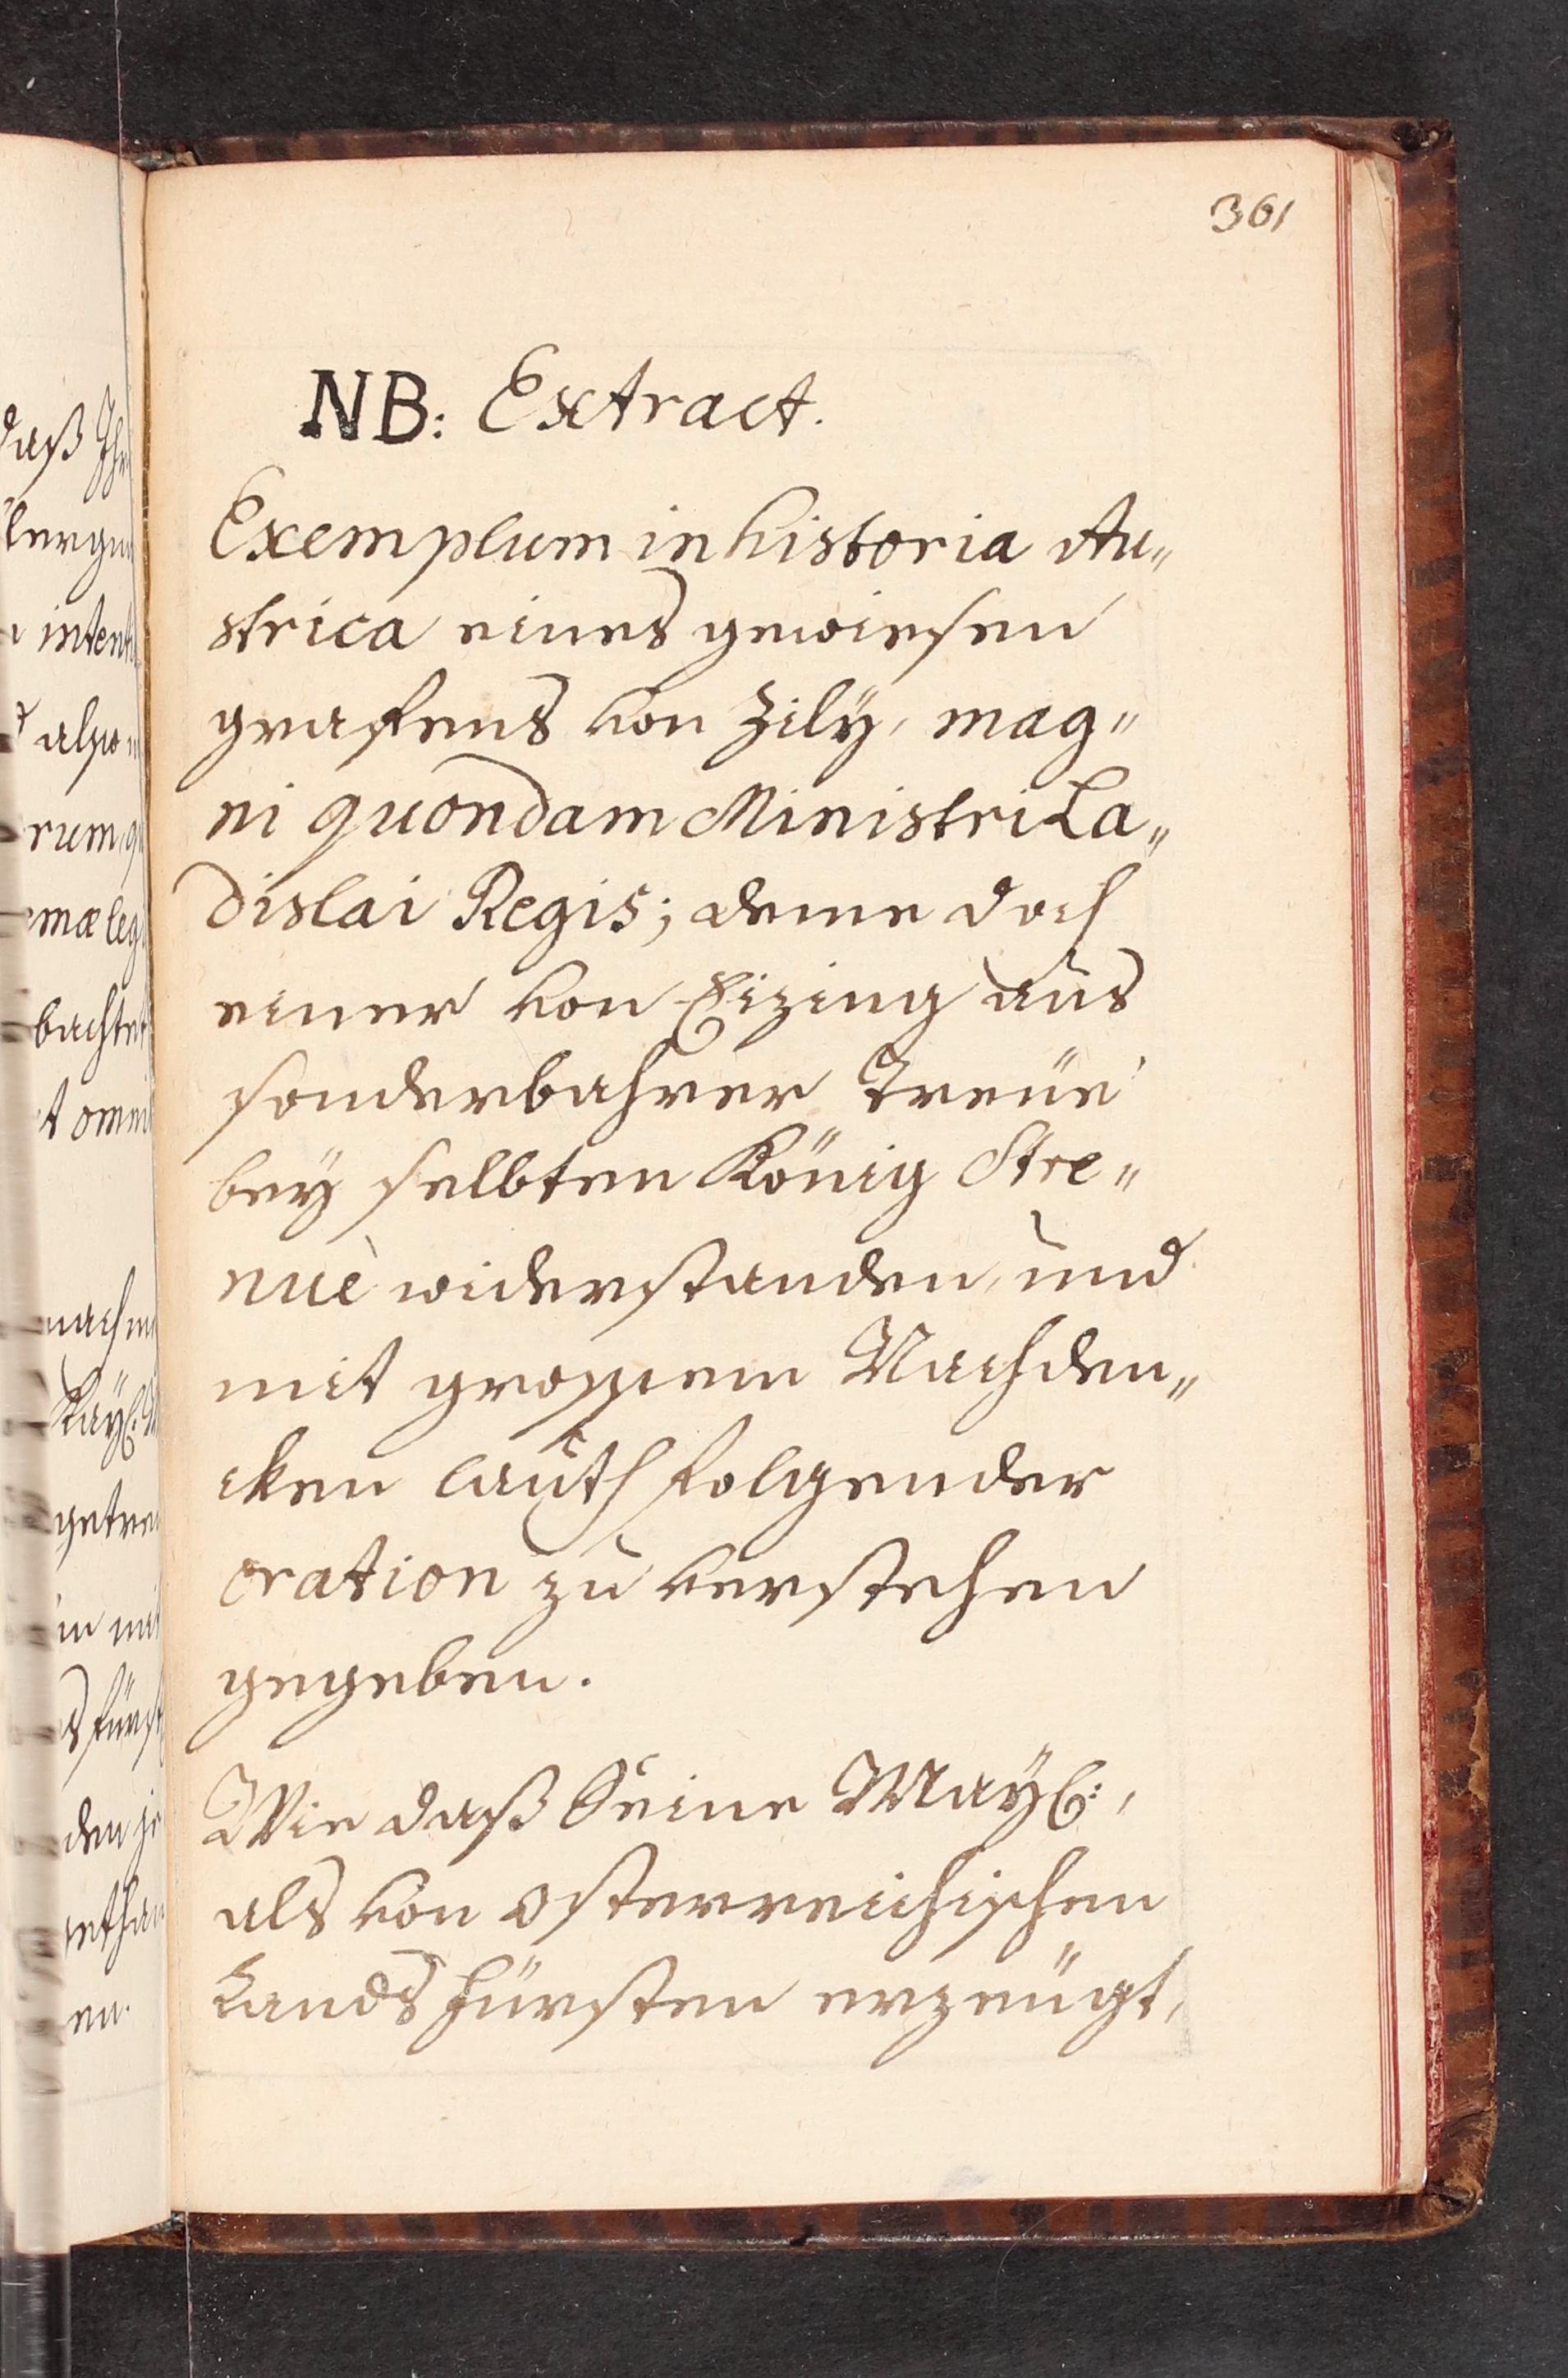 361
NB: Extract.
Exemplum in historia Au„
strica eines gewiesen
grafens von Zily, mag„
ni quondam Ministri La„
dislai Regis; deme doch
einer von Eizing aus
sonderbahrer Treüe
bey selbten König Stre„
nuè widerstanden, und
mit grossem Nachden„
cken lauth folgender
oration zu verstehen
gegeben.
Wie daß Seine May:,
als von osterreichischen
Landsfürsten erzeügt,